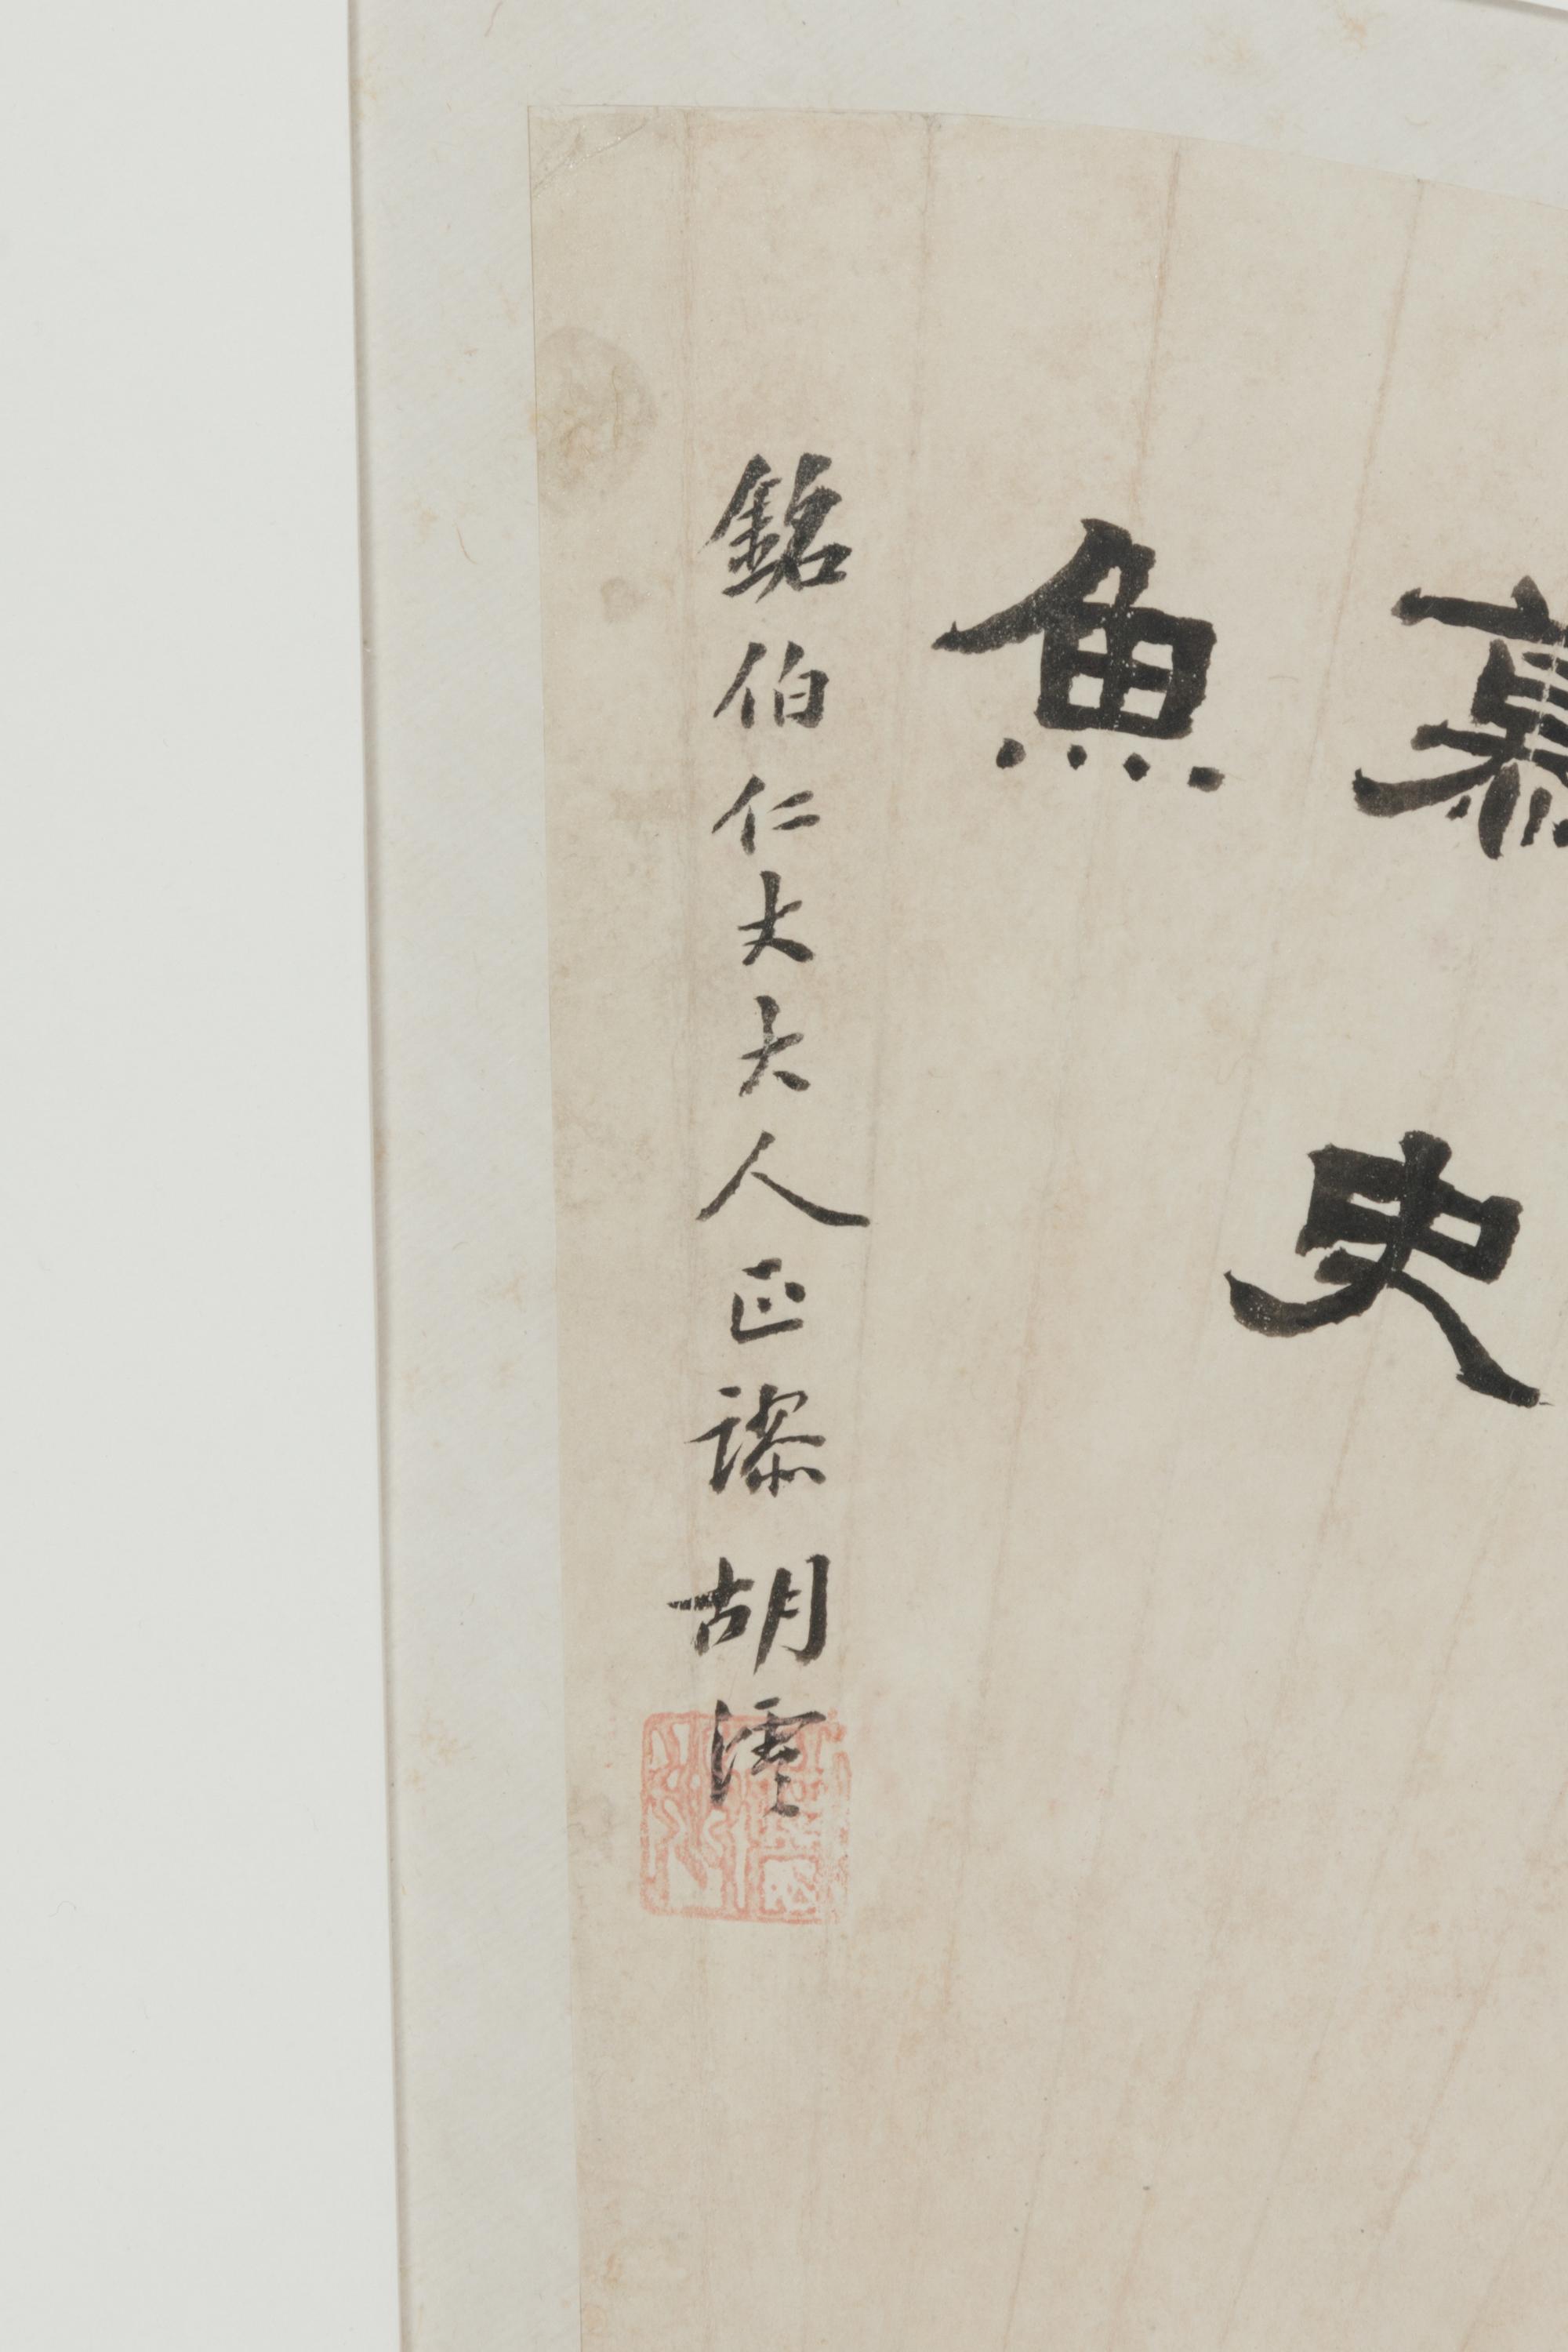 慕史
魚
銘伯仁丈大人正謬 胡澐